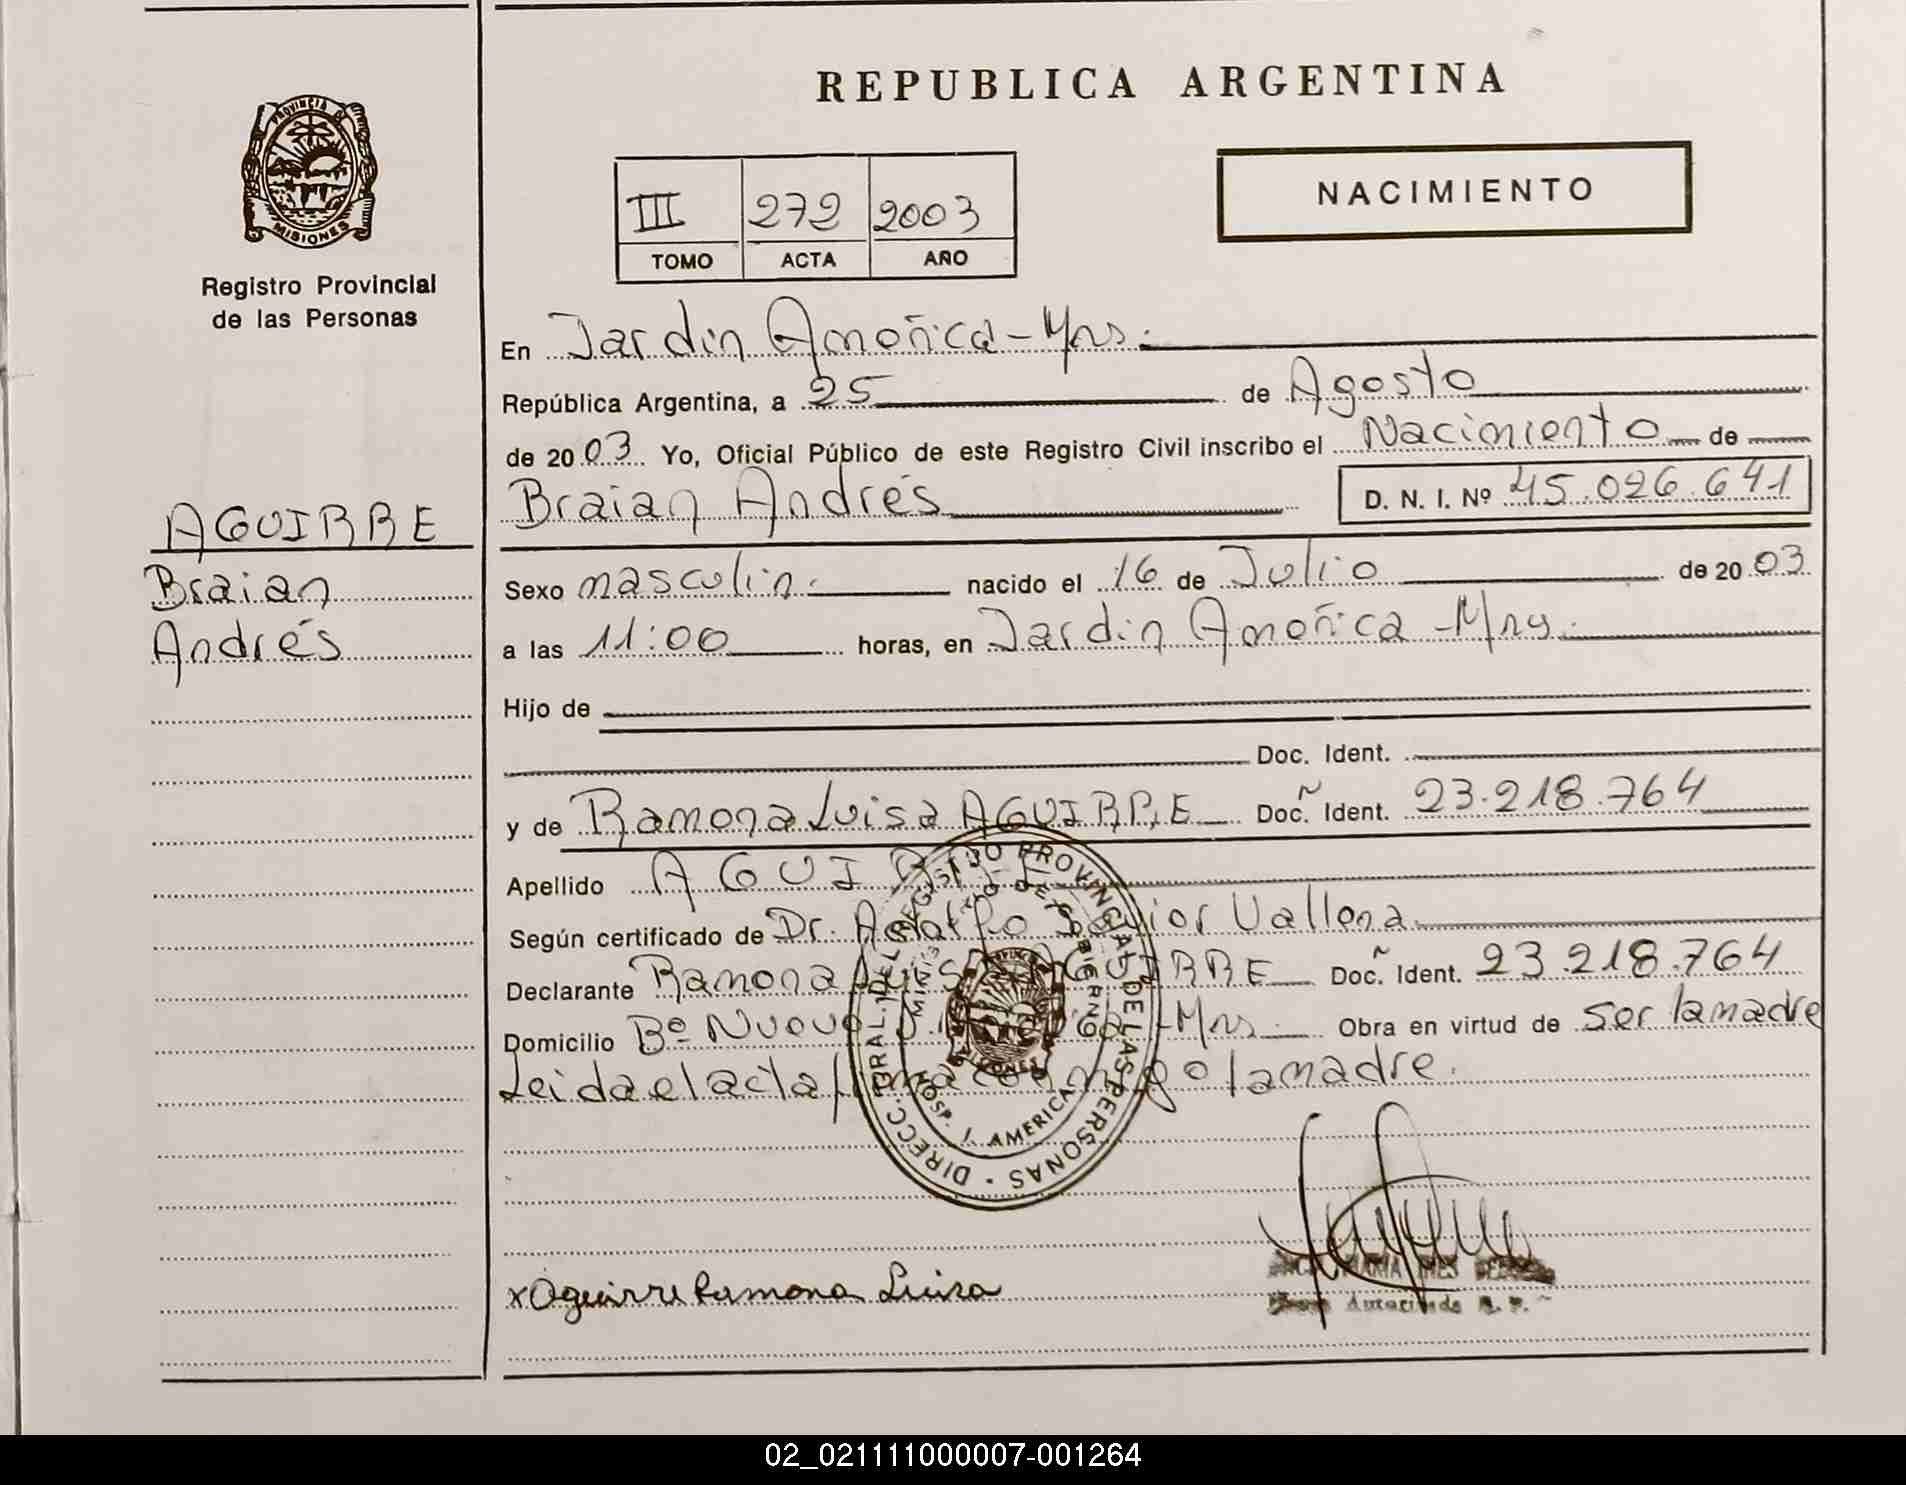 REPUBLICA ARGENTINA
PROVINCIA DE
MISIONES
Registro Provincial
de las Personas
III 272 2003
TOMO ACTA AÑO
NACIMIENTO
En Jardin América - Mns.
República Argentina, a 25 de Agosto
de 2003 Yo, Oficial Público de este Registro Civil inscribo el Nacimiento de
Braian Andrés D. N. I. Nº 45.026.641
AGUIRRE
Braian
Andrés
Sexo masculin. nacido el 16 de Julio de 2003
a las 11:00 horas, en Jardin América - Mns.
Hijo de
Doc. Ident.
y de Ramona Luisa AGUIRRE Doc. Ident. 23.218.764
Apellido AGUIRRE
Según certificado de Dr. Vallena
Declarante Ramona Luisa AGUIRRE Doc. Ident. 23.218.764
Domicilio Bº Nuevo - Mns. Obra en virtud de ser la madre
Leida el acta firma conmigo la madre.
DIRECC. GRAL. DEL REGISTRO PROVINCIAL DE LAS PERSONAS
MINISTERIO DE GOBIERNO
HOSP. J. AMERICA
x Aguirre Ramona Luisa
MARIA INES
Autorizada R. P.
02_021111000007-001264